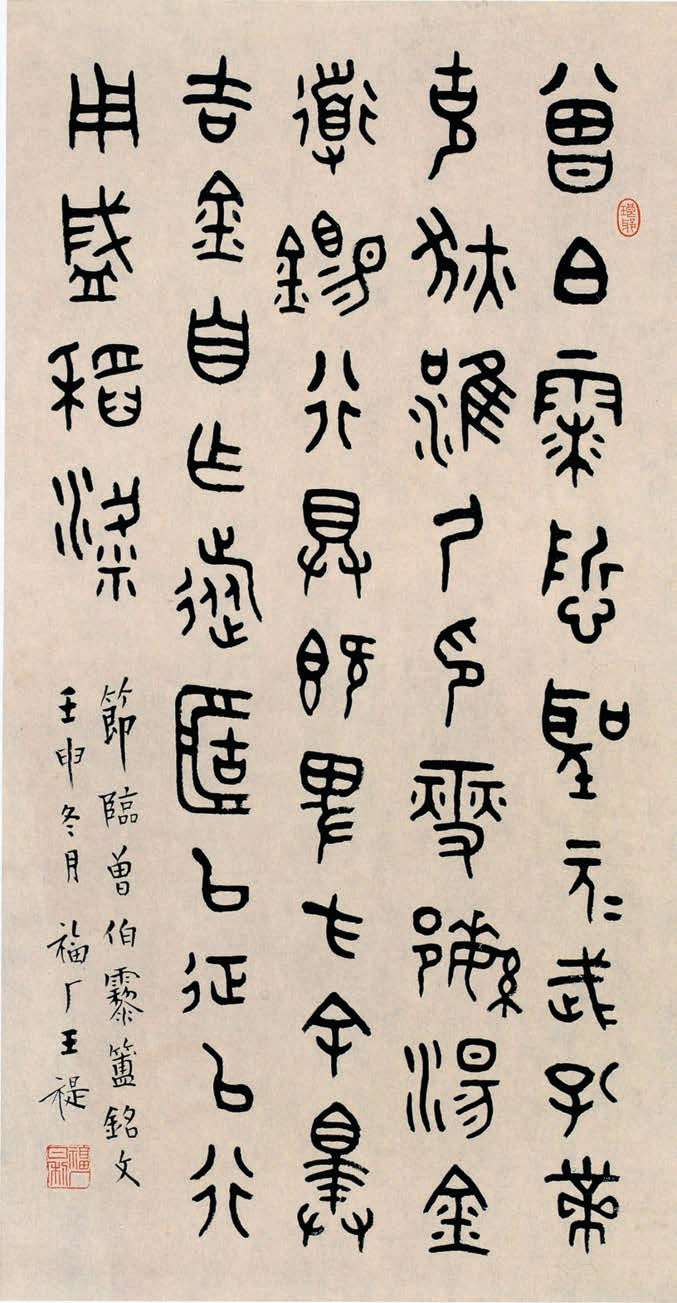 曾白霥悊聖元武孔黹
克狄淮尸印燮繁湯金
道錫行具既卑方余擇
吉金自乍旅簠㠯征㠯行
用盛稻粱
節臨曾伯霥簠銘文
壬申冬月 福厂王禔